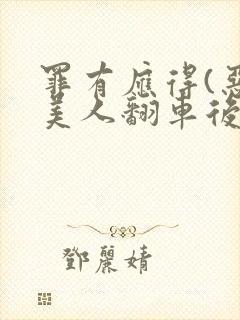 罪有應得(惡
美人翻車後
鄧麗婧